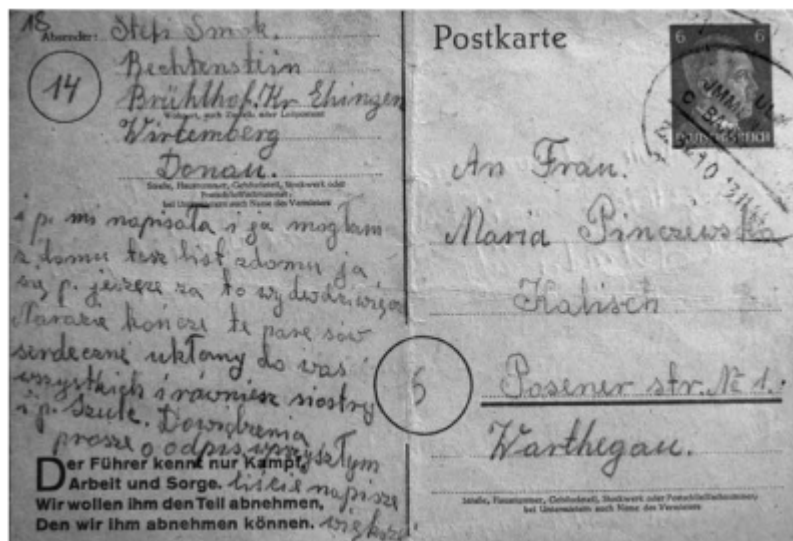 18
Absender: Stefi Smok.
14
Bechtenstein
Brühlhof. Kr Ehingen
Wohnort, auch Zustell- oder Leitpostamt
Wirtemberg
Donau.
Straße, Hausnummer, Gebäudeteil, Stockwerk oder
Postschließfachnummer;
bei Untermietern auch Name des Vermieters
i p. mi napisała i ja mogłam
z domu tesz list zdomu ja
się p. jeszcze za to
Narazie kończe te pare sów
serdeczne ukłony do was i
wszystkich i równiesz siostry
i p. Szule. Dowidzenia
prosze o odpis wprzyszłym
liście napisze
większe
Der Führer kennt nur Kampf,
Arbeit und Sorge.
Wir wollen ihm den Teil abnehmen,
Den wir ihm abnehmen können.
Postkarte
6 6
DEUTSCHES REICH
ULM
An Frau.
Maria Pinczewska
Kalisch
5
Posener str. № 1.
Warthegau.
Straße, Hausnummer, Gebäudeteil, Stockwerk oder Postschließfachnummer;
bei Untermietern auch Name des Vermieters